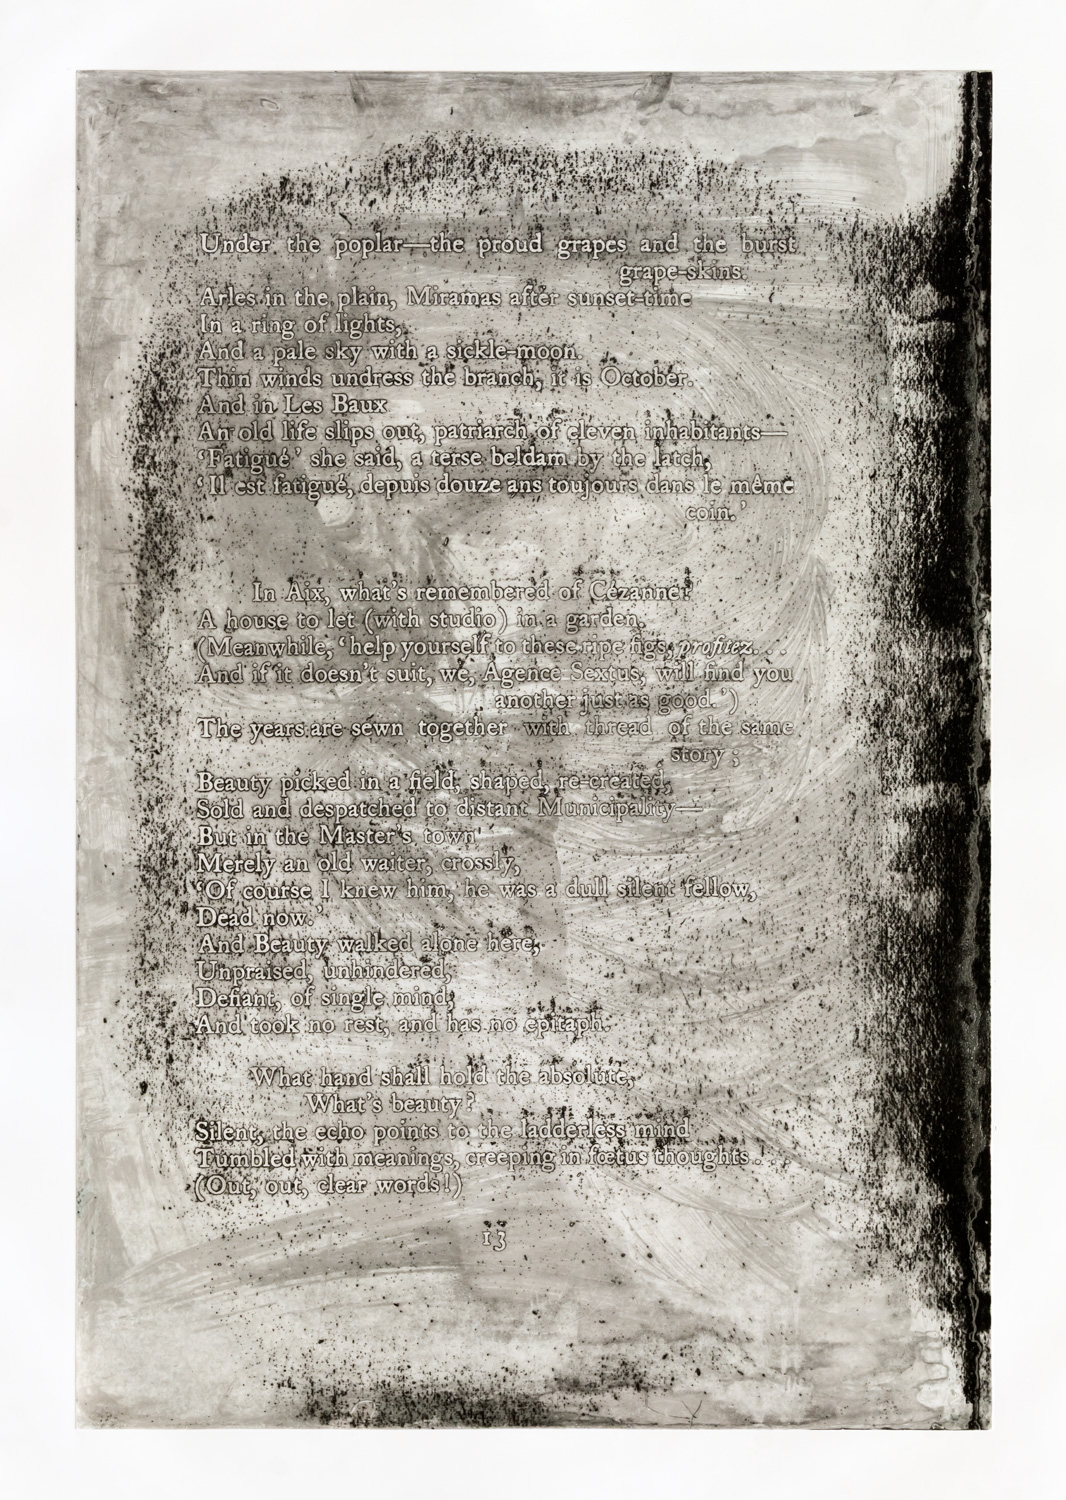 Under the poplar—the proud grapes and the burst
grape-skins.
Arles in the plain, Miramas after sunset-time
In a ring of lights,
And a pale sky with a sickle-moon.
Thin winds undress the branch, it is October.
And in Les Baux
An old life slips out, patriarch of eleven inhabitants—
‘Fatigué’ she said, a terse beldam by the latch,
‘Il est fatigué, depuis douze ans toujours dans le même
coin.’
In Aix, what's remembered of Cézanne?
A house to let (with studio) in a garden.
(Meanwhile, ‘help yourself to these ripe figs, profitez. . .
And if it doesn't suit, we, Agence Sextus, will find you
another just as good.’)
The years are sewn together with thread of the same
story ;
Beauty picked in a field, shaped, re-created,
Sold and despatched to distant Municipality—
But in the Master's town
Merely an old waiter, crossly,
‘Of course I knew him, he was a dull silent fellow,
Dead now.’
And Beauty walked alone here,
Unpraised, unhindered,
Defiant, of single mind,
And took no rest, and has no epitaph.
What hand shall hold the absolute,
What's beauty?
Silent, the echo points to the ladderless mind
Tumbled with meanings, creeping in fœtus thoughts . . .
(Out, out, clear words!)
13